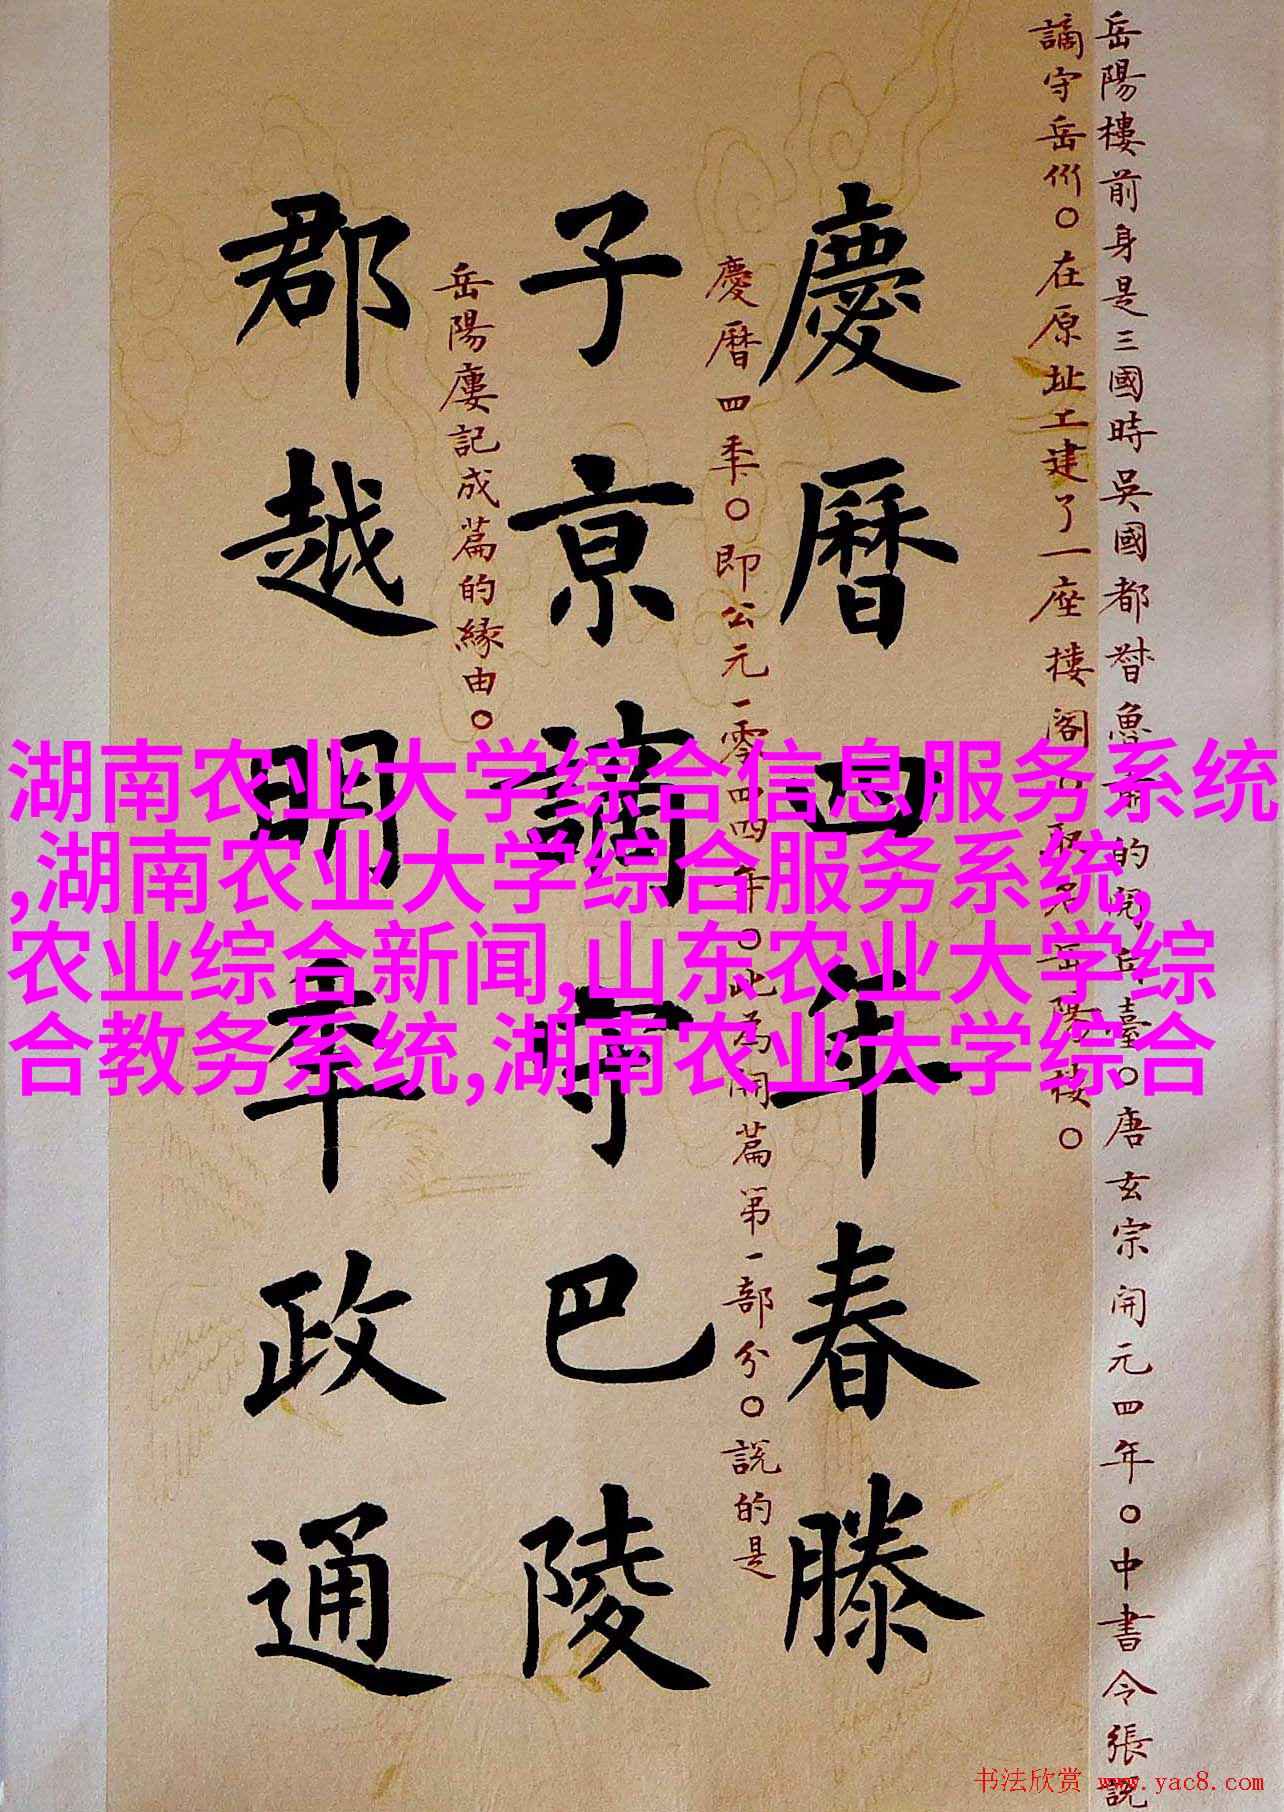 岳陽樓前身是三國時吳國都督魯肅的閱兵臺〇唐玄宗開元四年〇中書令張説
謫守岳州〇在原址工建了一座樓閣〇取名岳陽樓〇
慶曆四年春滕
慶曆四年〇即公元一零四四年〇此為開篇第一部分〇説的是
子京謫守巴陵
岳陽樓記成篇的緣由〇
郡越明年政通
湖南农业大学综合信息服务系统
,湖南农业大学综合服务系统,
农业综合新闻,山东农业大学综
合教务系统,湖南农业大学综合
书法欣赏 www.yac8.com